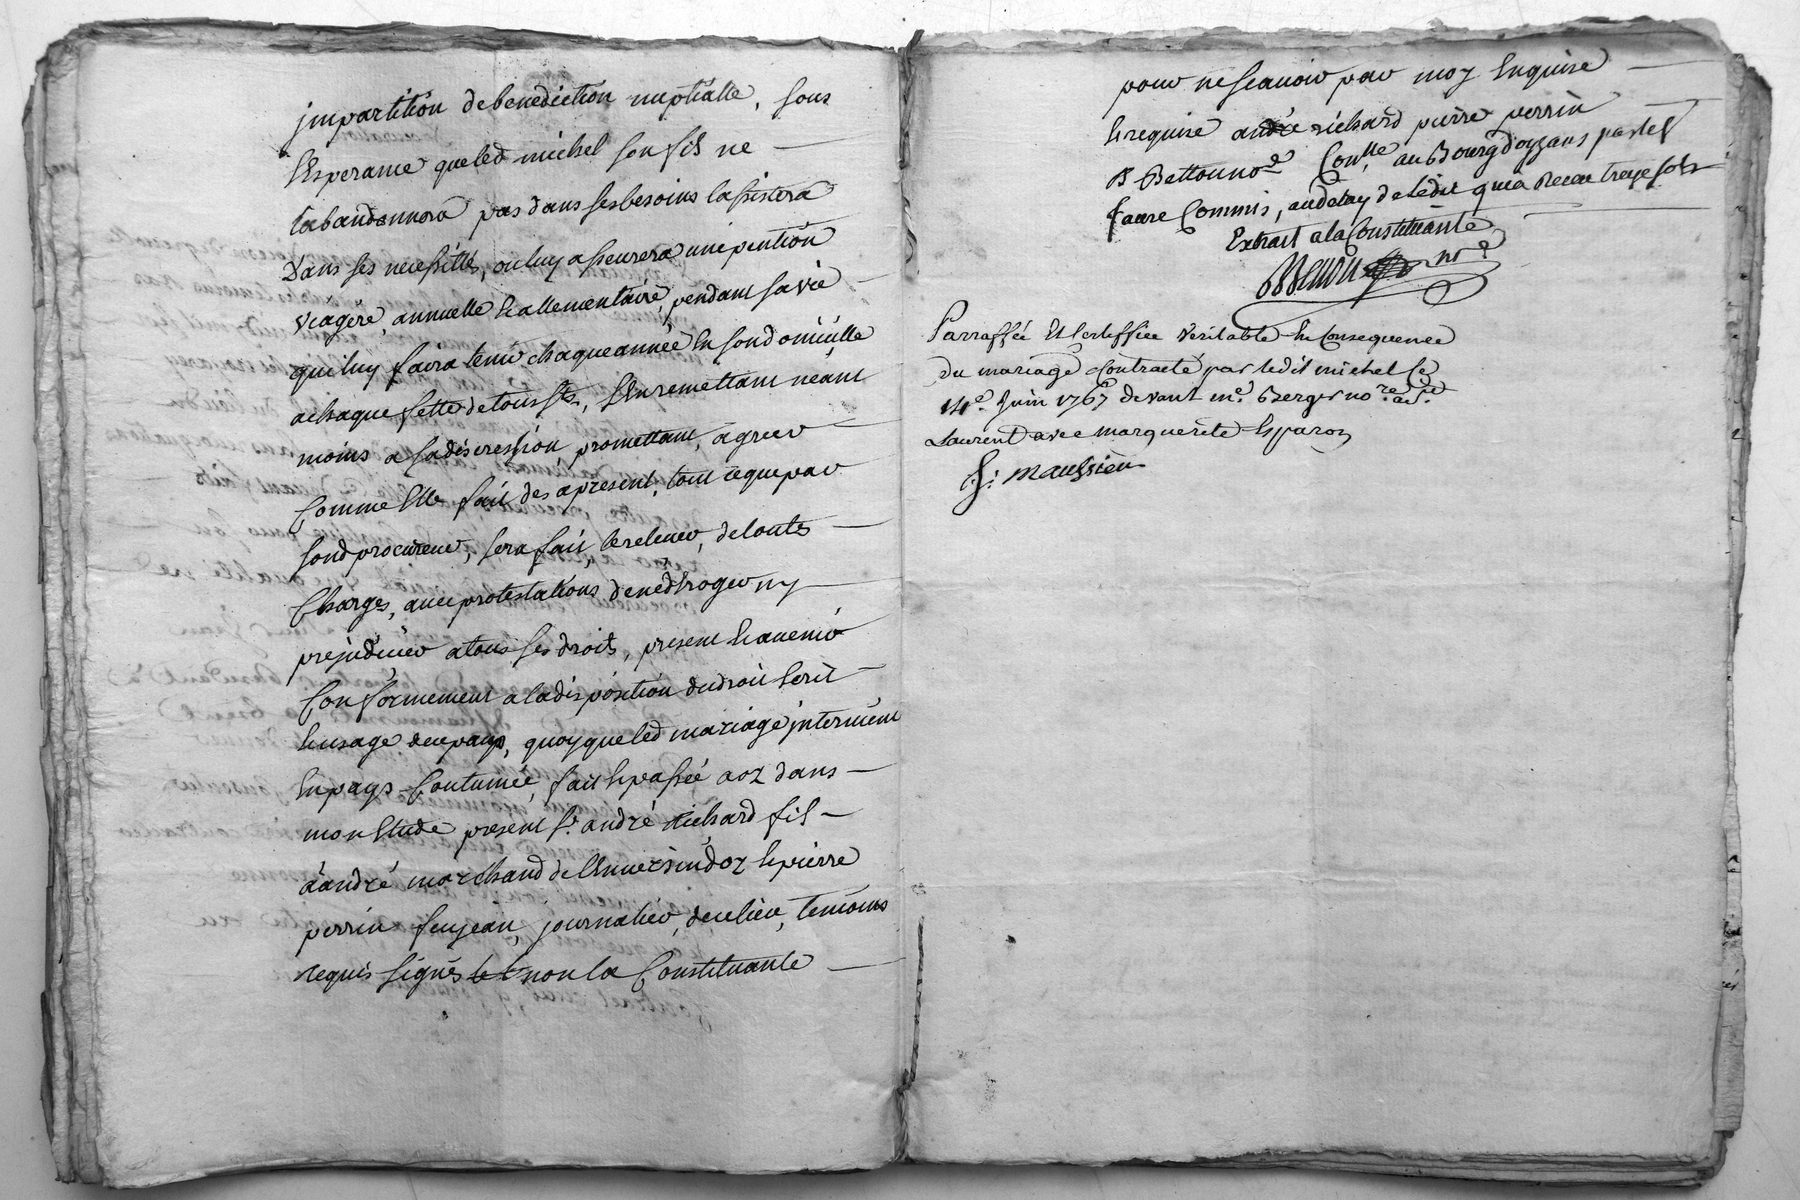 jmpartition de benediction nuptialle, sous
L'esperance que led michel son fils ne
labandonnera pas dans ses besoins lassistera
Dans ses necessittés, ou luy asseurera une pention
viagère, annuelle & allementaire, pendant sa vie
qu'il luy faira tenir chaque année En son domicille
a chaque fette de tousts, s'En remettant neant
moins a sa discression promettant, agreer
Comme Elle fait des a present, tout ce que par
sond procureur, sera fait, le relever, de toutes
Charges, avec protestations de ne dêroger ny
préjudicier a tous ses droits, present & avenir
Conformement a la disposition du droit Ecrit
& usage de ce pays, quoyque led mariage jntervient
En pays Coutumié, fait & passé aoz dans
mon Etude present sr. andré Richard fils
à andré marchand de L'Enversin doz & pierre
perrin feu jean, journalier, de ce lieu, temoins
requis signés non la Constituante
pour ne scavoir par moy Enquise
& requise andré richard pierre perrin
B Bettou nore Conlle au Bourg doyzans par le sr
faure Commis, au delay de ledit qui a Receu treize sols
Extrait a la Constituante
nore
Parraffée Et Certiffiée veritable En Consequence
du mariage Contracté par ledit michel le
14e. Juin 1767 devant me. Berger nore a St.
Laurent avec marguerite Esparon